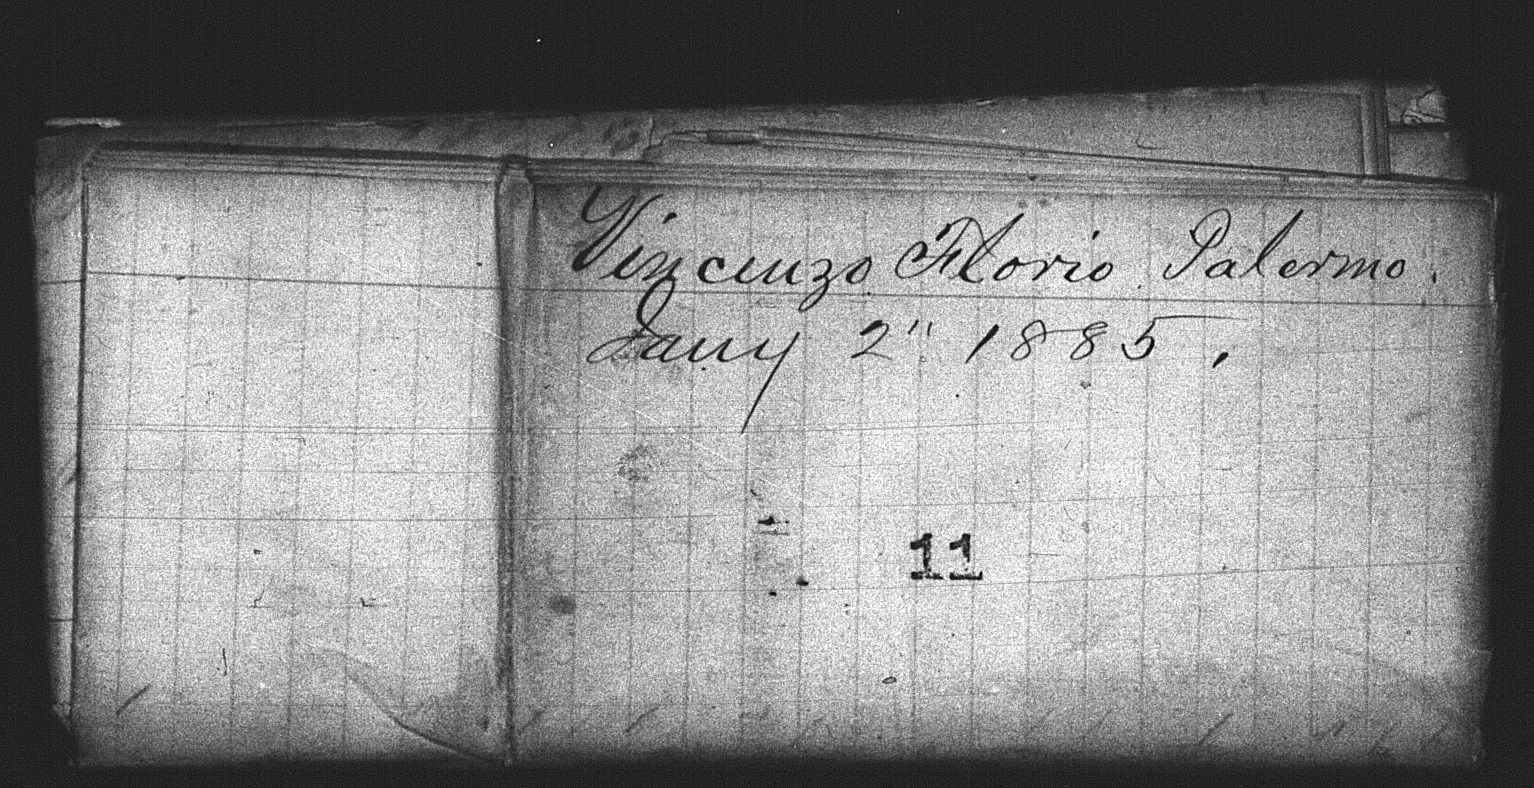 Vincenzo Florio Palermo.
Jany 2" 1885.
11